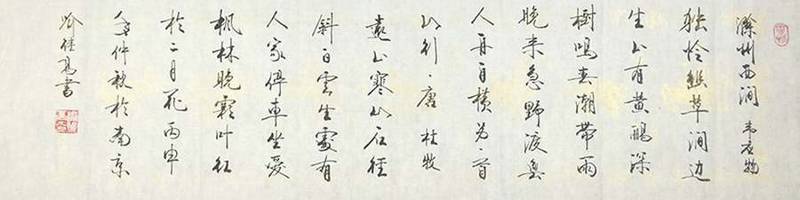 滁州西涧 韦应物
独怜幽草涧边
生上有黄鹂深
树鸣春潮带雨
晚来急野渡無
人舟自横
山行·唐 杜牧
遠上寒山石径
斜白雲生處有
人家停車坐爱
枫林晚霜叶红
於二月花 丙申
仲秋於南京
書